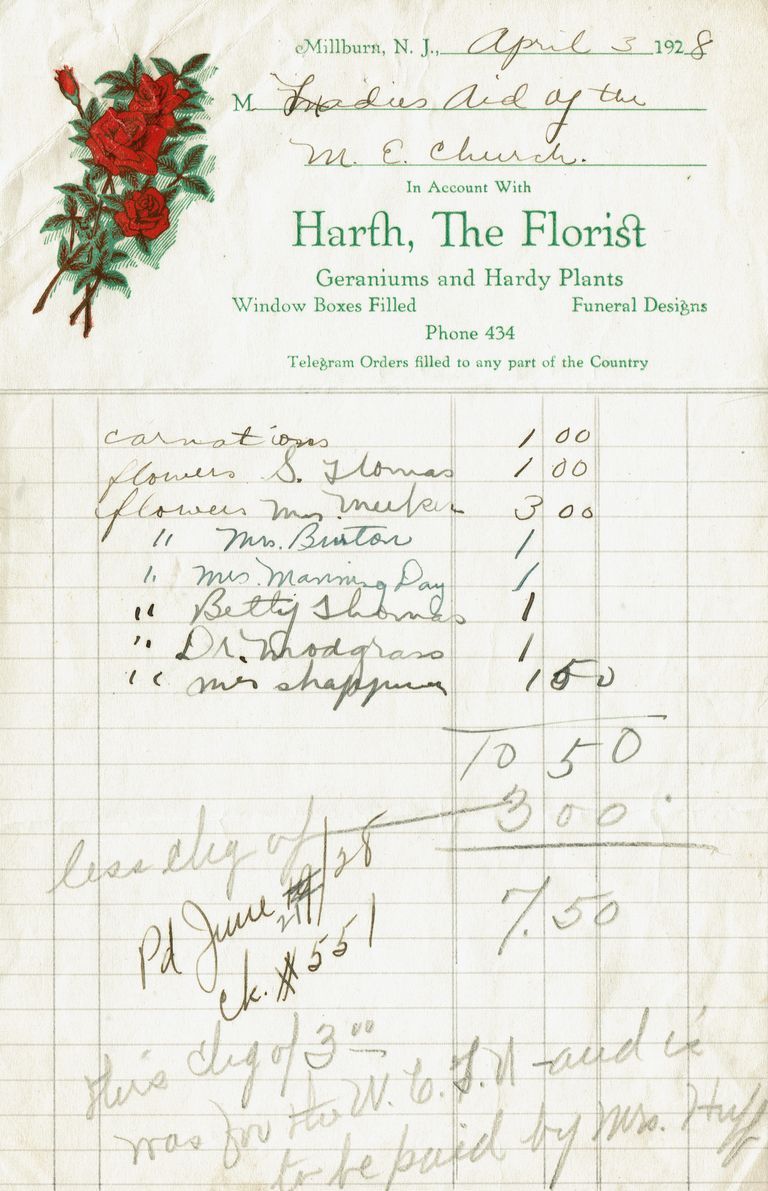 Millburn, N. J., April 3 1928
M. Ladies Aid of the
M. E. Church.
In Account With
Harth, The Florist
Geraniums and Hardy Plants
Window Boxes Filled Funeral Designs
Phone 434
Telegram Orders filled to any part of the Country
carnations 1 00
flowers S. Thomas 1 00
flowers Mrs. Meeker 3 00
" Mrs. Burton 1
" Mrs. Manning Day 1
" Betty Thomas 1
" Dr. 1
" Mrs 1 50
10 50
less chg of 3 00
7.50
Pd June /28
ck. # 551
this chg of 3 00
was for the W. C. T. U and is
to be paid by Mrs. Huff